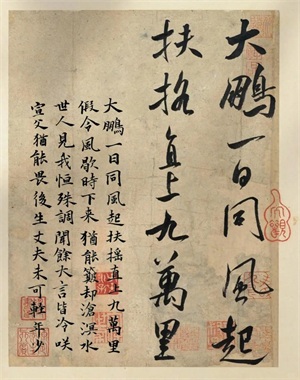 大鵬一日同風起
扶搖直上九萬里
大鵬一日同風起扶搖直上九萬里
假令風歇時下來猶能簸却滄溟水
世人見我恒殊調聞餘大言皆冷咲
宣父猶能畏後生丈夫未可輕年少